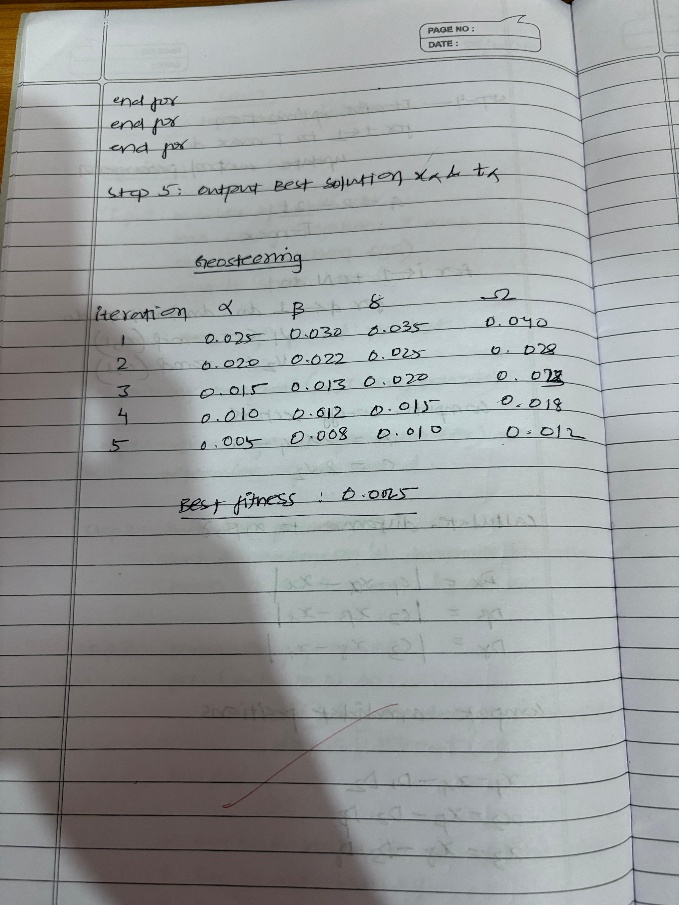 PAGE NO :
DATE :
end for
end for
end for
Step 5: output Best solution xα & fα
Geosteering
iteration α β δ Ω
1 0.025 0.030 0.035 0.040
2 0.020 0.022 0.025 0.028
3 0.015 0.013 0.020
4 0.010 0.012 0.015 0.018
5 0.005 0.008 0.010 0.012
Best fitness : 0.0025